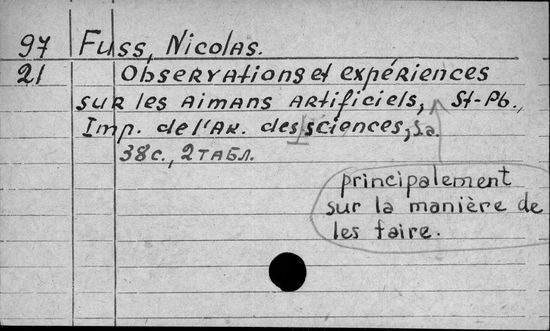 97 Fuss, Nicolas.
21 Observations et expériences
sur les aimans artificiels, St-Pb.,
Imp. de l'Ak. des sciences, s.a.
38с., 2 табл.
principalement
sur la manière de
les faire.